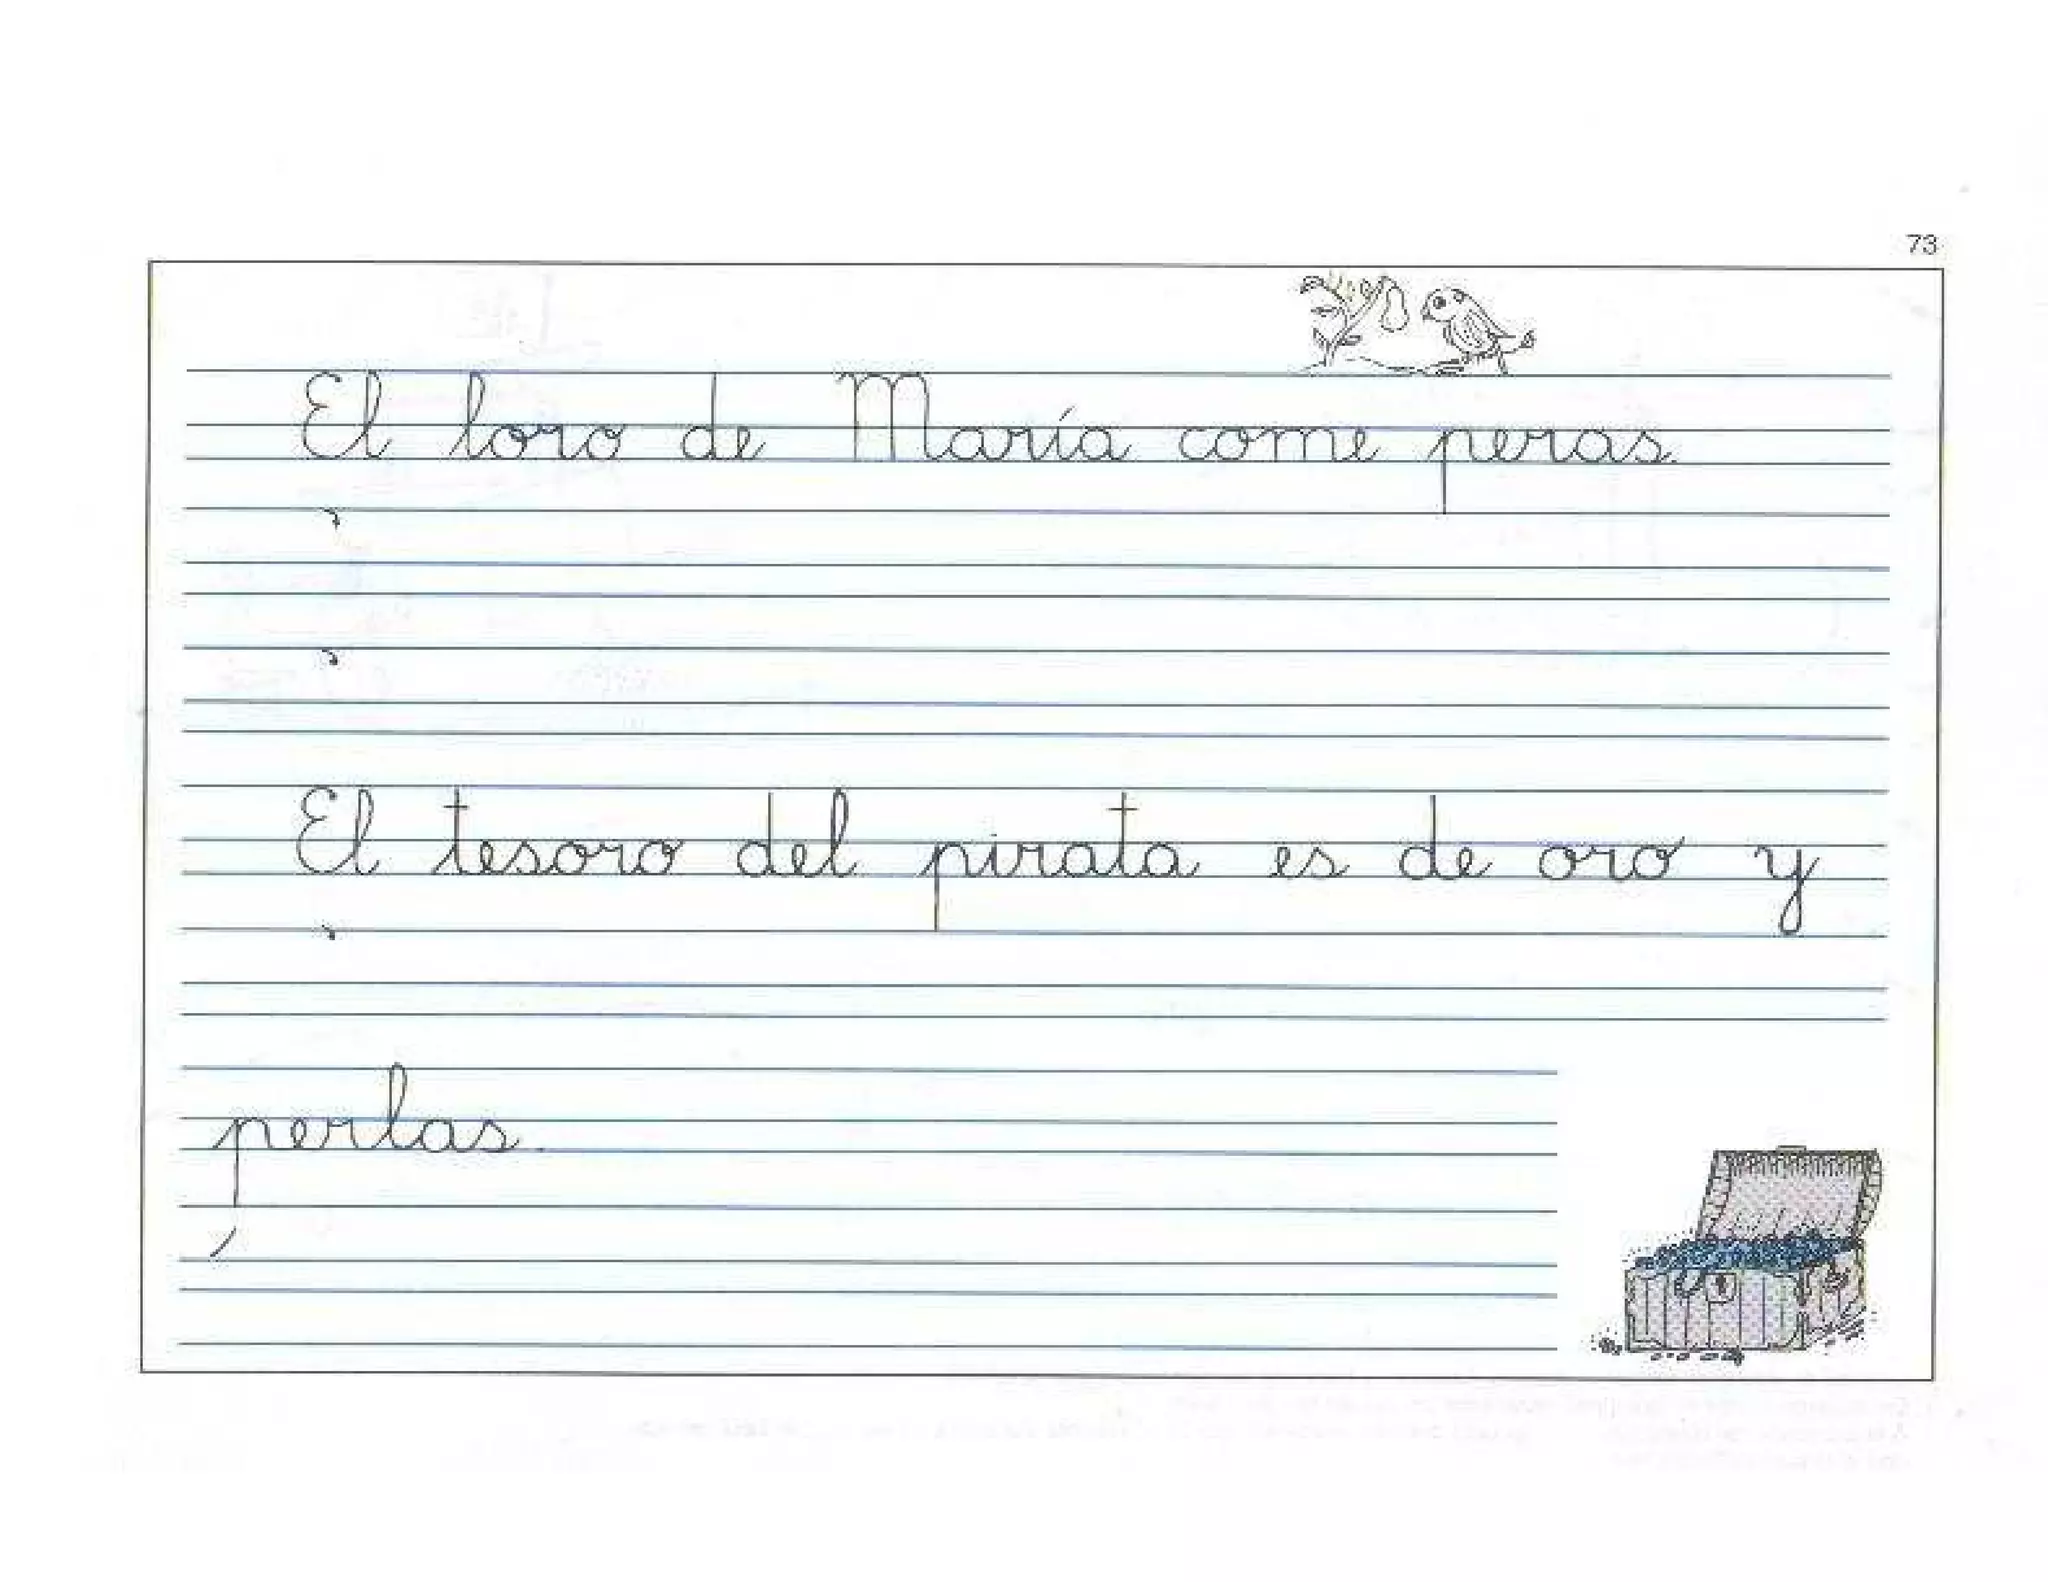 73
El loro de María come peras.
El tesoro del pirata es de oro y
perlas.